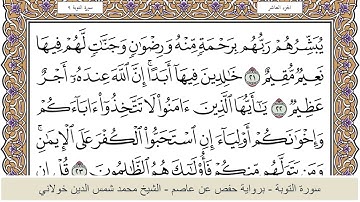 الجزء العاشر
سورة التوبة ٩
يُبَشِّرُهُمْ رَبُّهُم بِرَحْمَةٍ مِّنْهُ وَرِضْوَٰنٍ وَجَنَّٰتٍ لَّهُمْ فِيهَا
نَعِيمٌ مُّقِيمٌ ٢١ خَٰلِدِينَ فِيهَآ أَبَدًا ۚ إِنَّ ٱللَّهَ عِندَهُۥٓ أَجْرٌ
عَظِيمٌ ٢٢ يَٰٓأَيُّهَا ٱلَّذِينَ ءَامَنُوا۟ لَا تَتَّخِذُوٓا۟ ءَابَآءَكُمْ
وَإِخْوَٰنَكُمْ أَوْلِيَآءَ إِنِ ٱسْتَحَبُّوا۟ ٱلْكُفْرَ عَلَى ٱلْإِيمَٰنِ ۚ
وَمَن يَتَوَلَّهُم مِّنكُمْ فَأُو۟لَٰٓئِكَ هُمُ ٱلظَّٰلِمُونَ ٢٣ قُلْ إِن
سورة التوبة - برواية حفص عن عاصم - الشيخ محمد شمس الدين خولاني